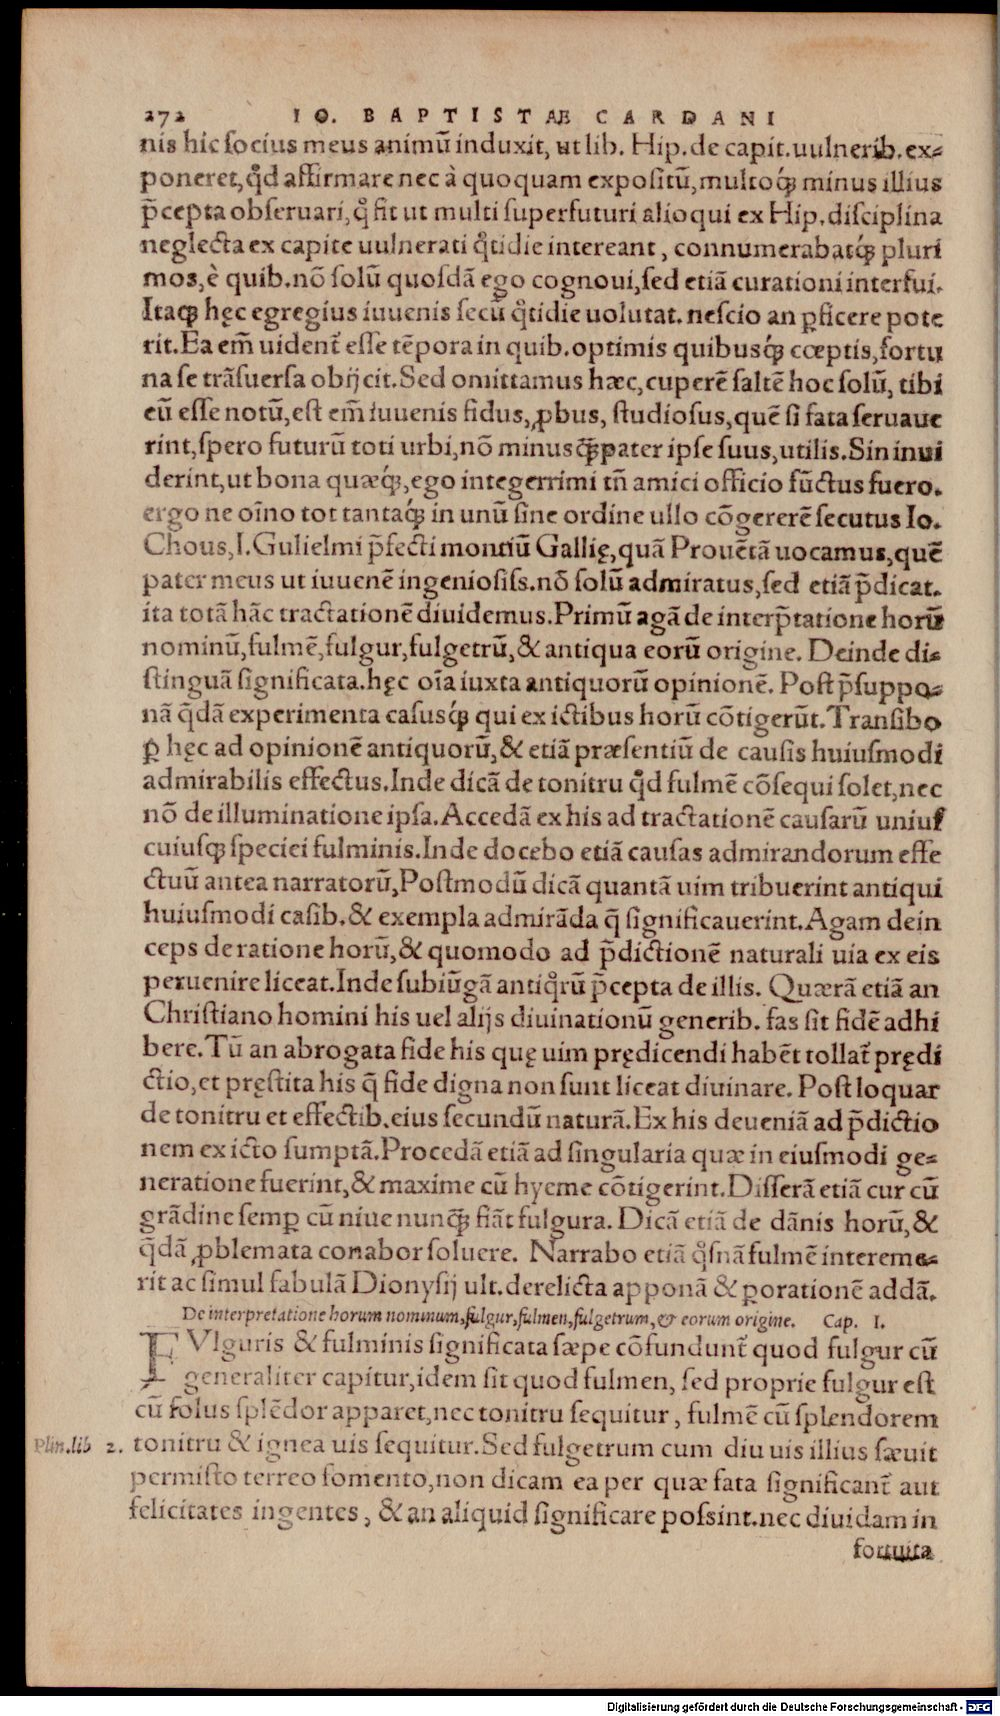 272 IO. BAPTISTAE CARDANI
nis hic socius meus animũ induxit, ut lib. Hip. de capit. uulnerib. ex-
poneret, qd̃ affirmare nec à quoquam expositũ, multoq́ꝫ minus illius
p̃cepta obseruari, q̊ fit ut multi superfuturi alioqui ex Hip. disciplina
neglecta ex capite uulnerati q̊tidie intereant, connumerabatq́ꝫ pluri
mos, è quib. nõ solũ quosdã ego cognoui, sed etiã curationi interfui.
Itaqꝫ hęc egregius iuuenis secũ q̊tidie uolutat. nescio an ꝑficere pote
rit. Ea em̃ uident̃ esse tẽpora in quib. optimis quibusq́ꝫ cœptis, fortu
na se trãsuersa obijcit. Sed omittamus hæc, cuperẽ saltẽ hoc solũ, tibi
eũ esse notũ, est em̃ iuuenis fidus, ꝓbus, studiosus, quẽ si fata seruaue
rint, spero futurũ toti urbi, nõ minus q̃ꝫ pater ipse suus, utilis. Sin inui
derint, ut bona quæq́ꝫ, ego integerrimi tñ amici officio fũctus fuero.
ergo ne oĩno tot tantaq́ꝫ in unũ sine ordine ullo cõgererẽ secutus Io.
Chous, I. Gulielmi p̃fecti montiũ Gallię, quã Prouẽtã uocamus, quẽ
pater meus ut iuuenẽ ingeniosiss. nõ solũ admiratus, sed etiã p̃dicat.
ita totã hãc tractationẽ diuidemus. Primũ agã de interp̃tatione horũ
nominũ, fulmẽ, fulgur, fulgetrũ, & antiqua eorũ origine. Deinde di-
stinguã significata. hęc oĩa iuxta antiquorũ opinionẽ. Post p̃suppo-
nã q̃dã experimenta casusq́ꝫ qui ex ictibus horũ cõtigerũt. Transibo
ꝑ hęc ad opinionẽ antiquorũ, & etiã præsentiũ de causis huiusmodi
admirabilis effectus. Inde dicã de tonitru qd̃ fulmẽ cõsequi solet, nec
nõ de illuminatione ipsa. Accedã ex his ad tractationẽ causarũ unius
cuiusqꝫ speciei fulminis. Inde docebo etiã causas admirandorum effe
ctuũ antea narratorũ, Postmodũ dicã quantã uim tribuerint antiqui
huiusmodi casib. & exempla admirãda q̃ significauerint. Agam dein
ceps de ratione horũ, & quomodo ad p̃dictionẽ naturali uia ex eis
peruenire liceat. Inde subiũgã antiq̊rũ p̃cepta de illis. Quærã etiã an
Christiano homini his uel alijs diuinationũ generib. fas sit fidẽ adhi
bere. Tũ an abrogata fide his quę uim prędicendi habẽt tollat̃ prędi
ctio, et pręstita his q̃ fide digna non sunt liceat diuinare. Post loquar
de tonitru et effectib. eius secundũ naturã. Ex his deueniã ad p̃dictio
nem ex icto sumptã. Procedã etiã ad singularia quæ in eiusmodi ge-
neratione fuerint, & maxime cũ hyeme cõtigerint. Differã etiã cur cũ
grãdine semꝑ cũ niue nunq̃ꝫ fiãt fulgura. Dicã etiã de dãnis horũ, &
q̃dã ꝓblemata conabor soluere. Narrabo etiã q̊snã fulmẽ intereme-
rit ac simul fabulã Dionysij ult. derelicta apponã & ꝑorationẽ addã.
De interpretatione horum nominum, fulgur, fulmen, fulgetrum, & eorum origine. Cap. I.
FVlguris & fulminis significata sæpe cõfundunt̃ quod fulgur cũ
generaliter capitur, idem sit quod fulmen, sed proprie fulgur est
cũ solus splẽdor apparet, nec tonitru sequitur, fulmẽ cũ splendorem
Plin. lib 2. tonitru & ignea uis sequitur. Sed fulgetrum cum diu uis illius sæuit
permisto terreo fomento, non dicam ea per quæ fata significant̃ aut
felicitates ingentes, & an aliquid significare possint. nec diuidam in
fortuita
Digitalisierung gefördert durch die Deutsche Forschungsgemeinschaft - DFG